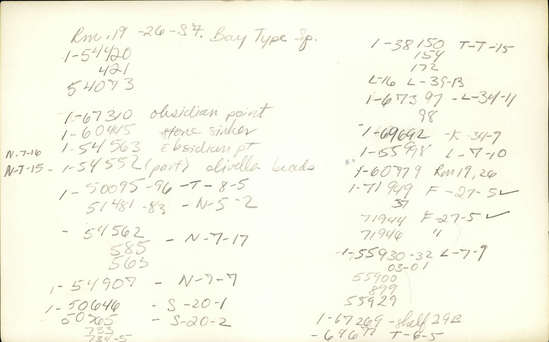 Rm. 19 -26- S.F. Bay Type Sp.
1-54420
421
54073
1-67310 obsidian point
1-60445 stone sinker
N-7-16 1-54563 obsidian pt
N-7-15 - 1-54552 (part) olivella beads
1-50095-96 -T-8-5
51481-83 - N-5-2
- 54562
585 - N-7-17
565
1-54907 - N-7-7
1-50646 - S-20-1
50765 - S-20-2
733
734-5
1-38150 T-7-15
154
172
L-16 L-39-B
1-67397 - L-34-11
98
1-69692 -K-34-7
1-55998 L-7-10
1-60779 Rm 19,26
1-71949 F-27-5 ✓
37
71944 F-27-5 ✓
71946 "
-1-55930-32 L-7-9
03-01
55900
899
55929
1-67269 - shelf 29B
T-6-5